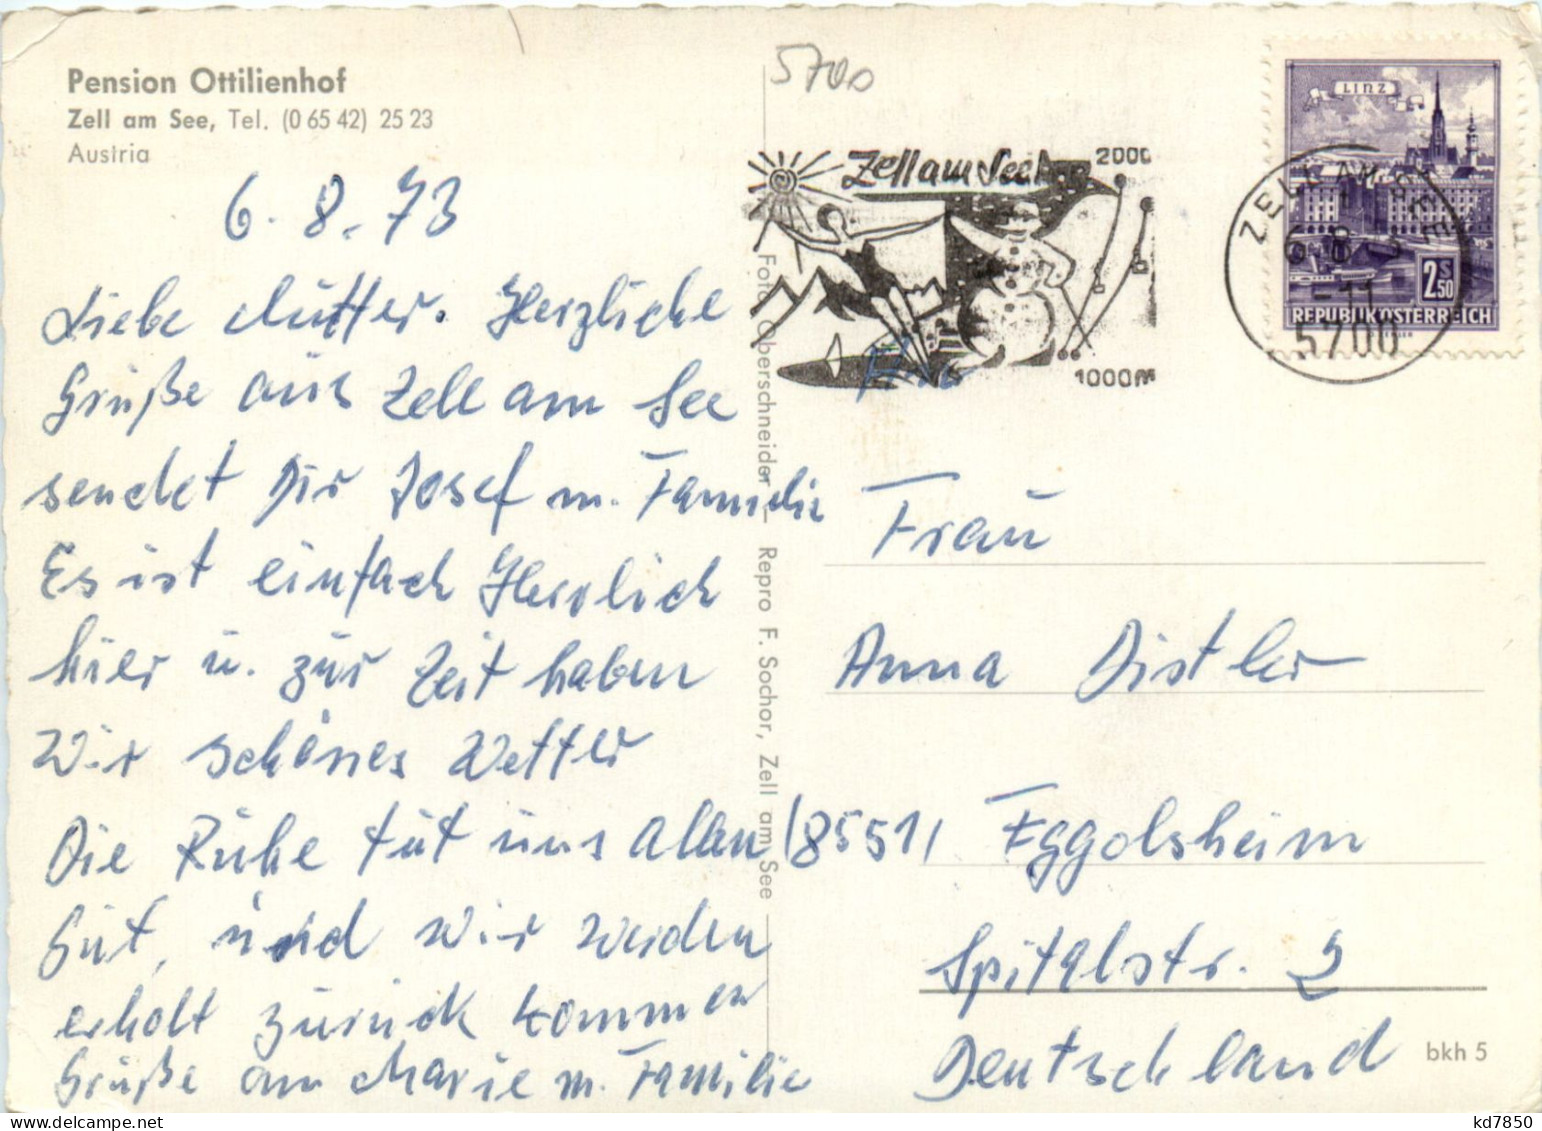 Pension Ottilienhof
Zell am See, Tel. (0 65 42) 25 23
Austria
6. 8. 73
Liebe Mutter. Herzliche
Grüße aus Zell am See
sendet Dir Josef m. Familie
Es ist einfach Herrlich
hier u. zur Zeit haben
Wir schönes Wetter
Die Ruhe tut uns allen
Gut, und wir werden
erholt zurück kommen
Grüße an Marie m. Familie
Foto Oberschneider – Repro F. Sochor, Zell am See
5700
Zell am See
2000
1000m
LINZ
2 S 50
REPUBLIK ÖSTERREICH
ZELL AM SEE
6. 8. 
-11
5700
Frau
Anna Distler
(8551) Eggolsheim
Spitalstr. 2
Deutschland
bkh 5
kd7850